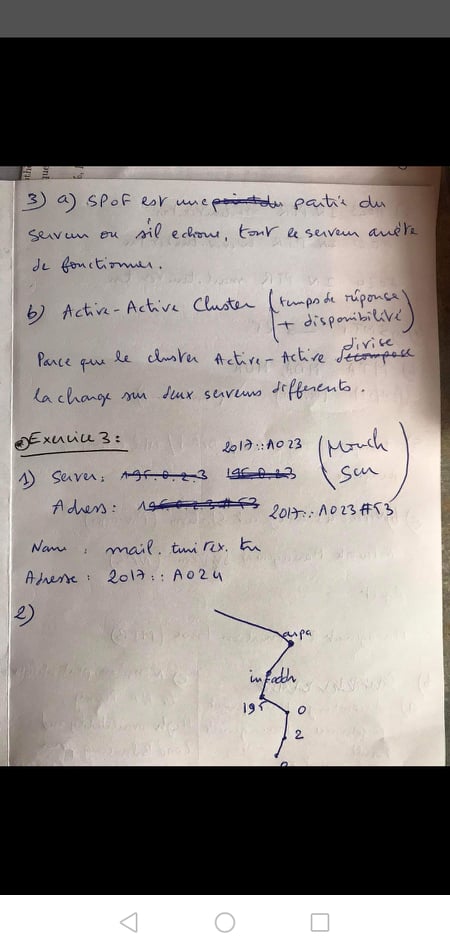 3) a) SPOF est une partie du
serveur ou s'il echoue, tout le serveur arrête
de fonctionner.
b) Active-Active Cluster (temps de réponse
+ disponibilité)
Parce que le cluster Active-Active divise
la charge sur deux serveurs differents.
Exercice 3:
2017::A023
1) Server: 195.0.2.3
Adress: 2017::A023#53
Name: mail.tunirex.tn
Adresse: 2017::A024
2)
arpa
in-addr
195
0
2